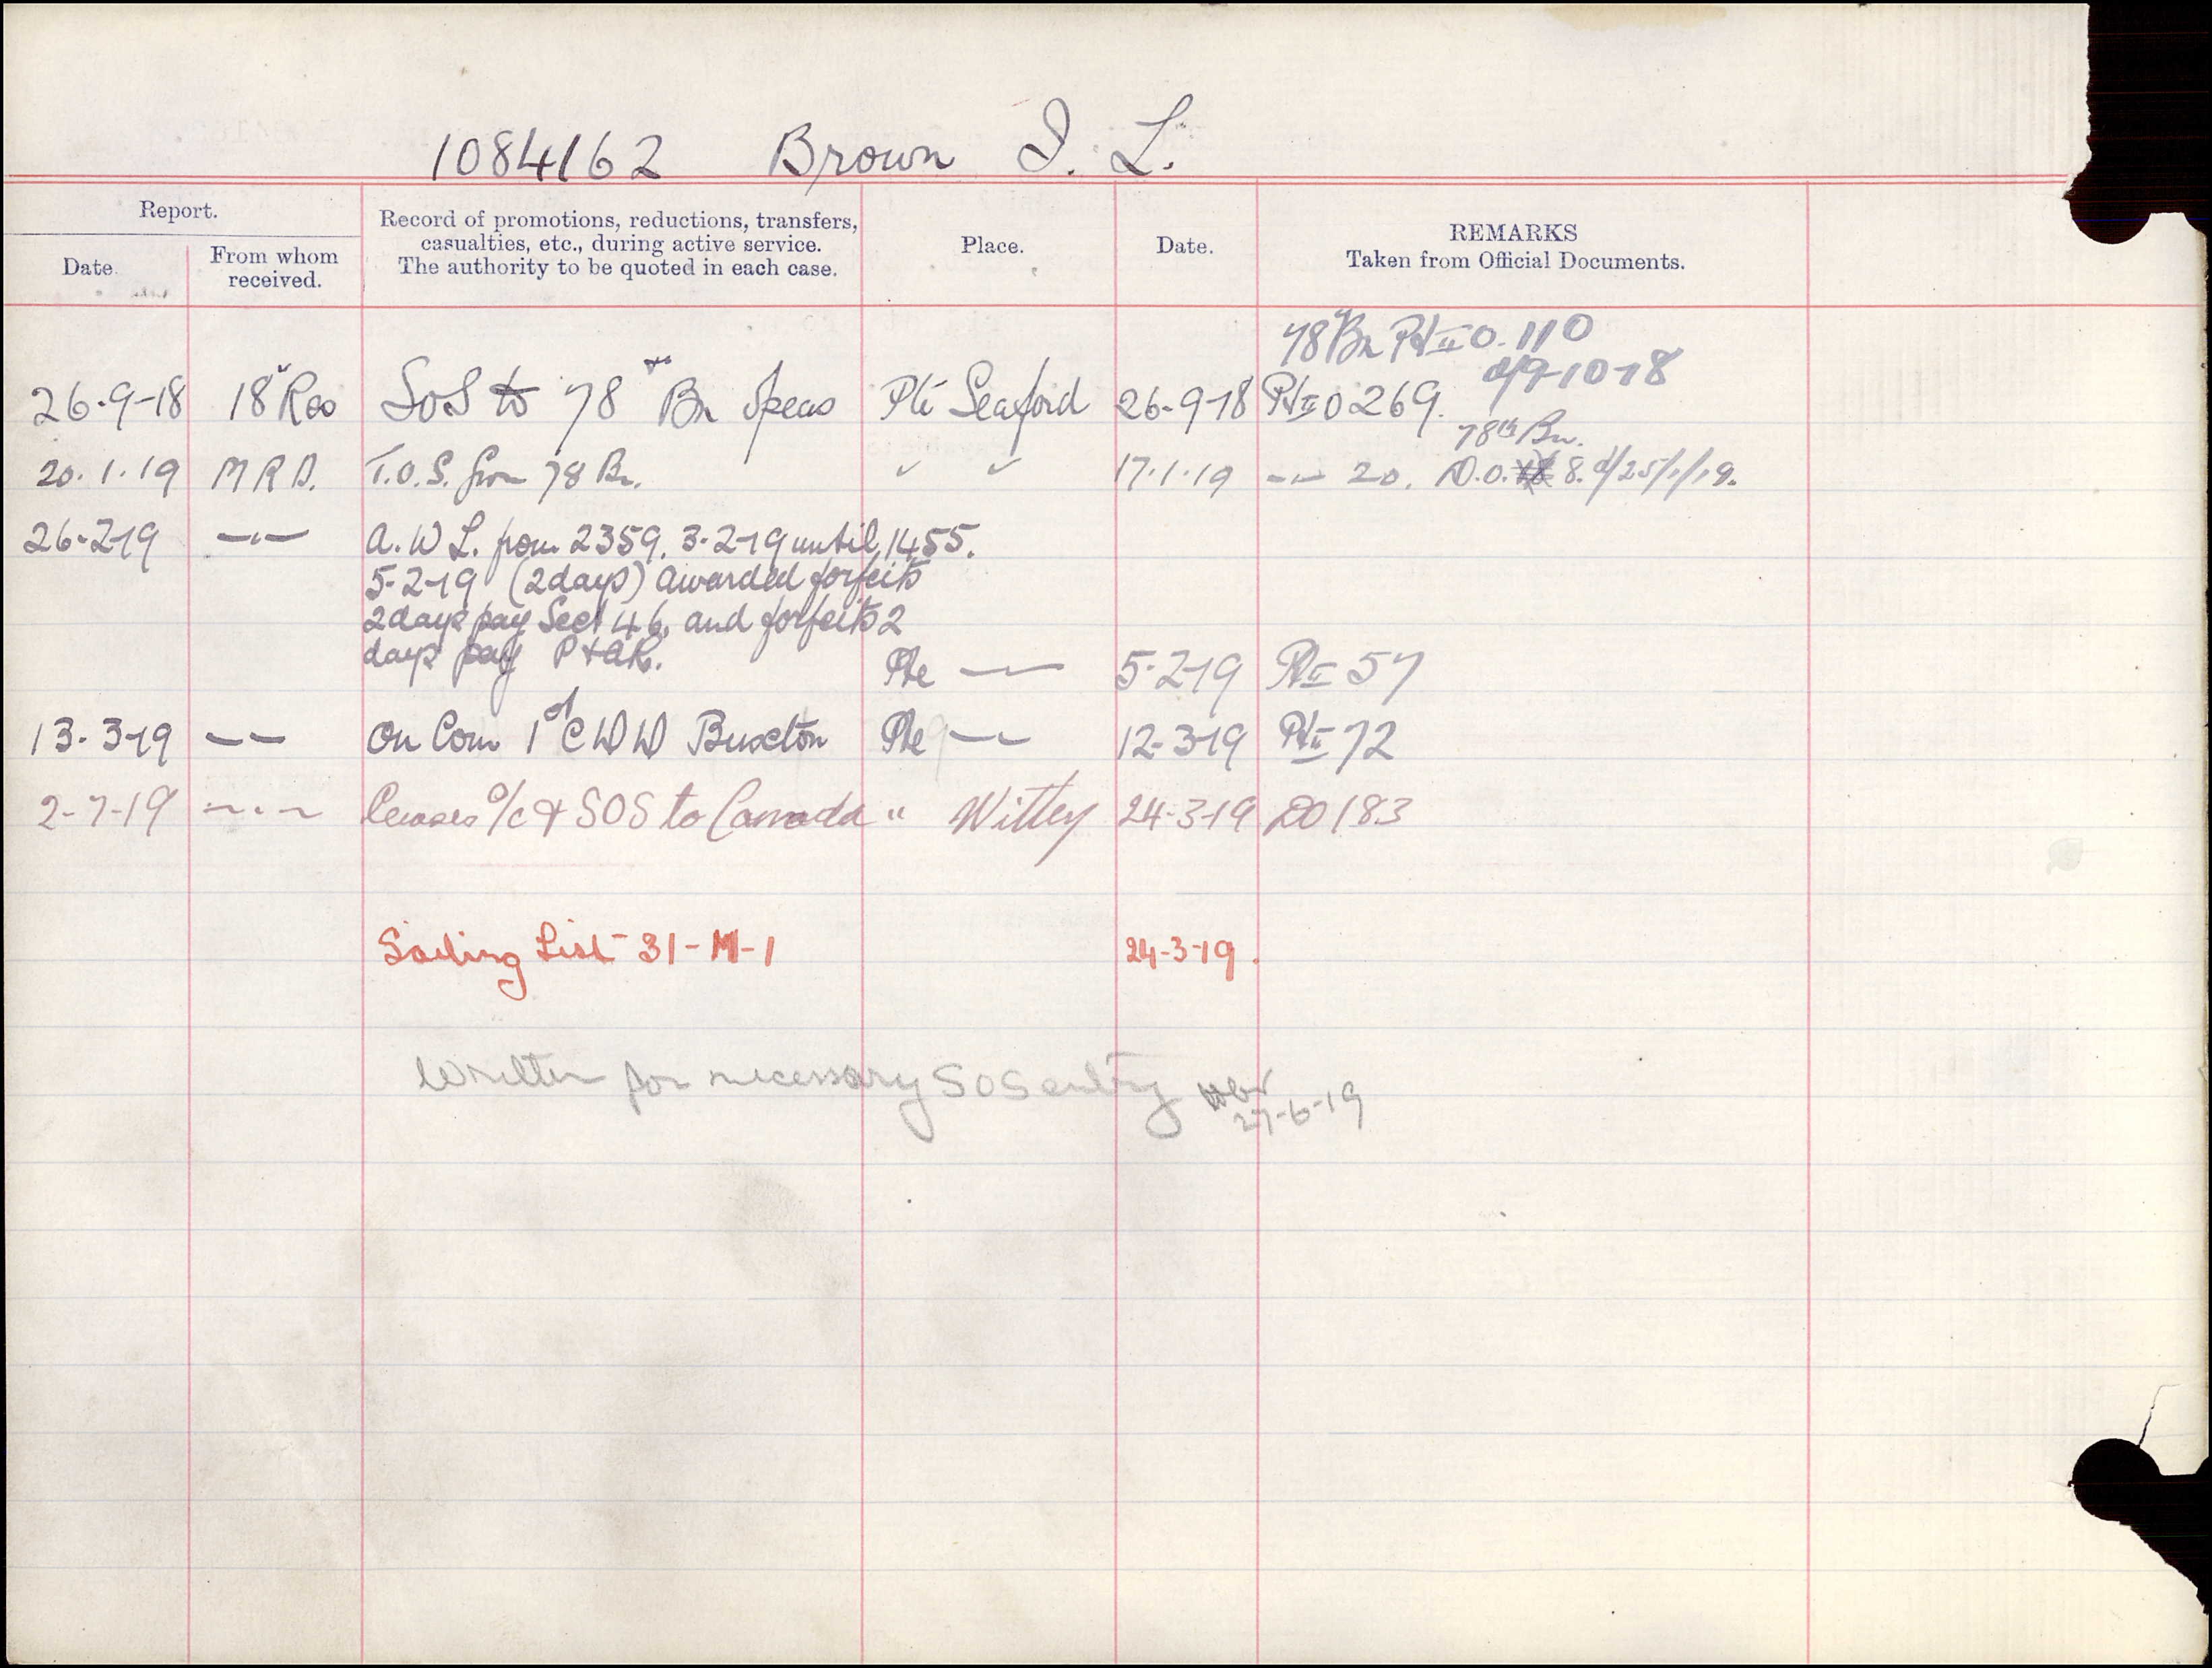 1084162 Brown I. L.
Report.
Date.
From whom
received.
Record of promotions, reductions, transfers,
casualties, etc., during active service.
The authority to be quoted in each case.
Place.
Date.
REMARKS
Taken from Official Documents.
78 Bn Pt II O. 110
d/9-10-18
26-9-18 18 Res SoS to 78 Bn Oseas Pte Seaford 26-9-18 Pt II O 269.
78th Bn.
20.1.19 M R D. T.O.S. from 78 Bn. " " 17.1.19 -"- 20. D.O. 8. d/25/1/19.
26-2-19 -"- A. W L. from 2359. 3-2-19 until 1455.
5-2-19 (2days) awarded forfeits
2days pay Sect 46, and forfeits 2
days pay P & AR.
Pte -"- 5-2-19 Pt II 57
13-3-19 -"- On Com 1st C D D Buxton Pte -"- 12-3-19 Pt II 72
2-7-19 -"- Ceases o/c & SOS to Canada " Witley 24-3-19 DO 183
Sailing List 31-M-1 24-3-19.
Written for necessary SOS entry
27-6-19